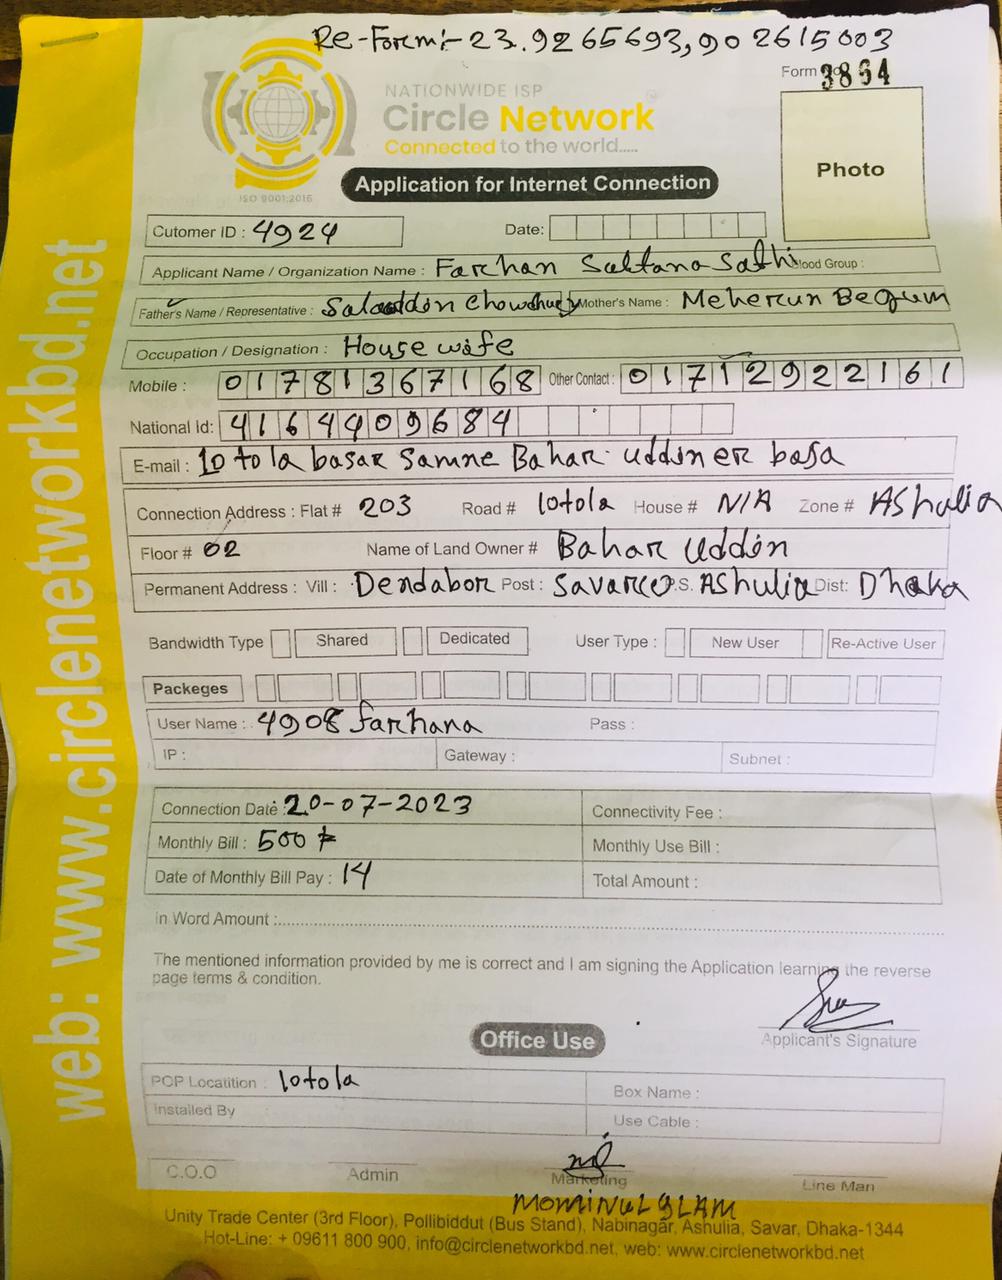 Re-Form:- 23.9265693,90 2615003
Form 3864
NATIONWIDE ISP
Circle Network
Connected to the world.....
ISO 9001:2015
Application for Internet Connection
Photo
Cutomer ID : 4924 Date:
Applicant Name / Organization Name : Farhan Sultana Sathi Blood Group :
Father's Name / Representative : Salauddin Chowdhury Mother's Name : Meherun Begum
Occupation / Designation : House wife
Mobile : 01781367168 Other Contact : 01712922161
National Id: 4164409684
E-mail : 10 tola basar Samne Bahar uddiner basa
Connection Address : Flat # 203 Road # 10tola House # N/A Zone # AShulia
Floor # 02 Name of Land Owner # Bahar Uddin
Permanent Address : Vill : Dendabor Post : Savar P.S. AShulia Dist: Dhaka
Bandwidth Type Shared Dedicated User Type : New User Re-Active User
Packeges
User Name : 4908 farhana Pass :
IP : Gateway : Subnet :
Connection Date : 20-07-2023 Connectivity Fee :
Monthly Bill : 500 Monthly Use Bill :
Date of Monthly Bill Pay : 14 Total Amount :
in Word Amount :
The mentioned information provided by me is correct and I am signing the Application learning the reverse
page terms & condition.
Applicant's Signature
Office Use
POP Locatition : 10tola Box Name :
Installed By Use Cable :
C.O.O Admin Marketing Line Man
MOMINUL ISLAM
Unity Trade Center (3rd Floor), Pollibiddut (Bus Stand), Nabinagar, Ashulia, Savar, Dhaka-1344
Hot-Line: + 09611 800 900, info@circlenetworkbd.net, web: www.circlenetworkbd.net
web: www.circlenetworkbd.net